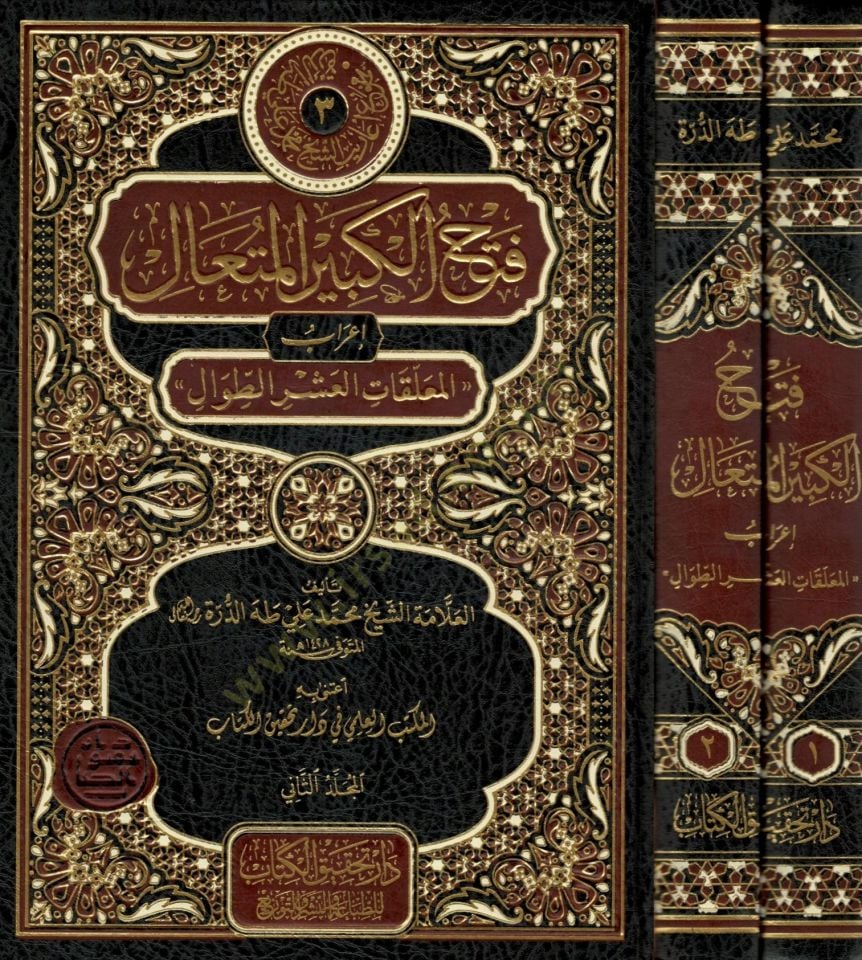 ٣
فتح الكبير المتعال
إعراب
«المعلقات العشر الطوال»
تأليف
العلامة الشيخ محمد علي طه الدرة
المتوفى سنة ١٤٢٨هـ
اعتنى به
المكتب العلمي في دار تحقيق الكتاب
المجلد الثاني
دار تحقيق الكتاب
للطباعة والنشر والتوزيع
محمد علي طه الدرة
فتح
الكبير المتعال
إعراب
«المعلقات العشر الطوال»
١
٢
دار تحقيق الكتاب